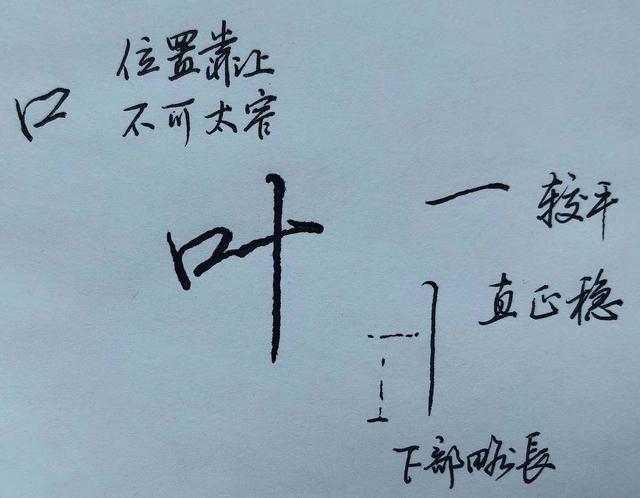 口 位置靠上
不可太窄
叶
一 较平
直正稳
下部略長